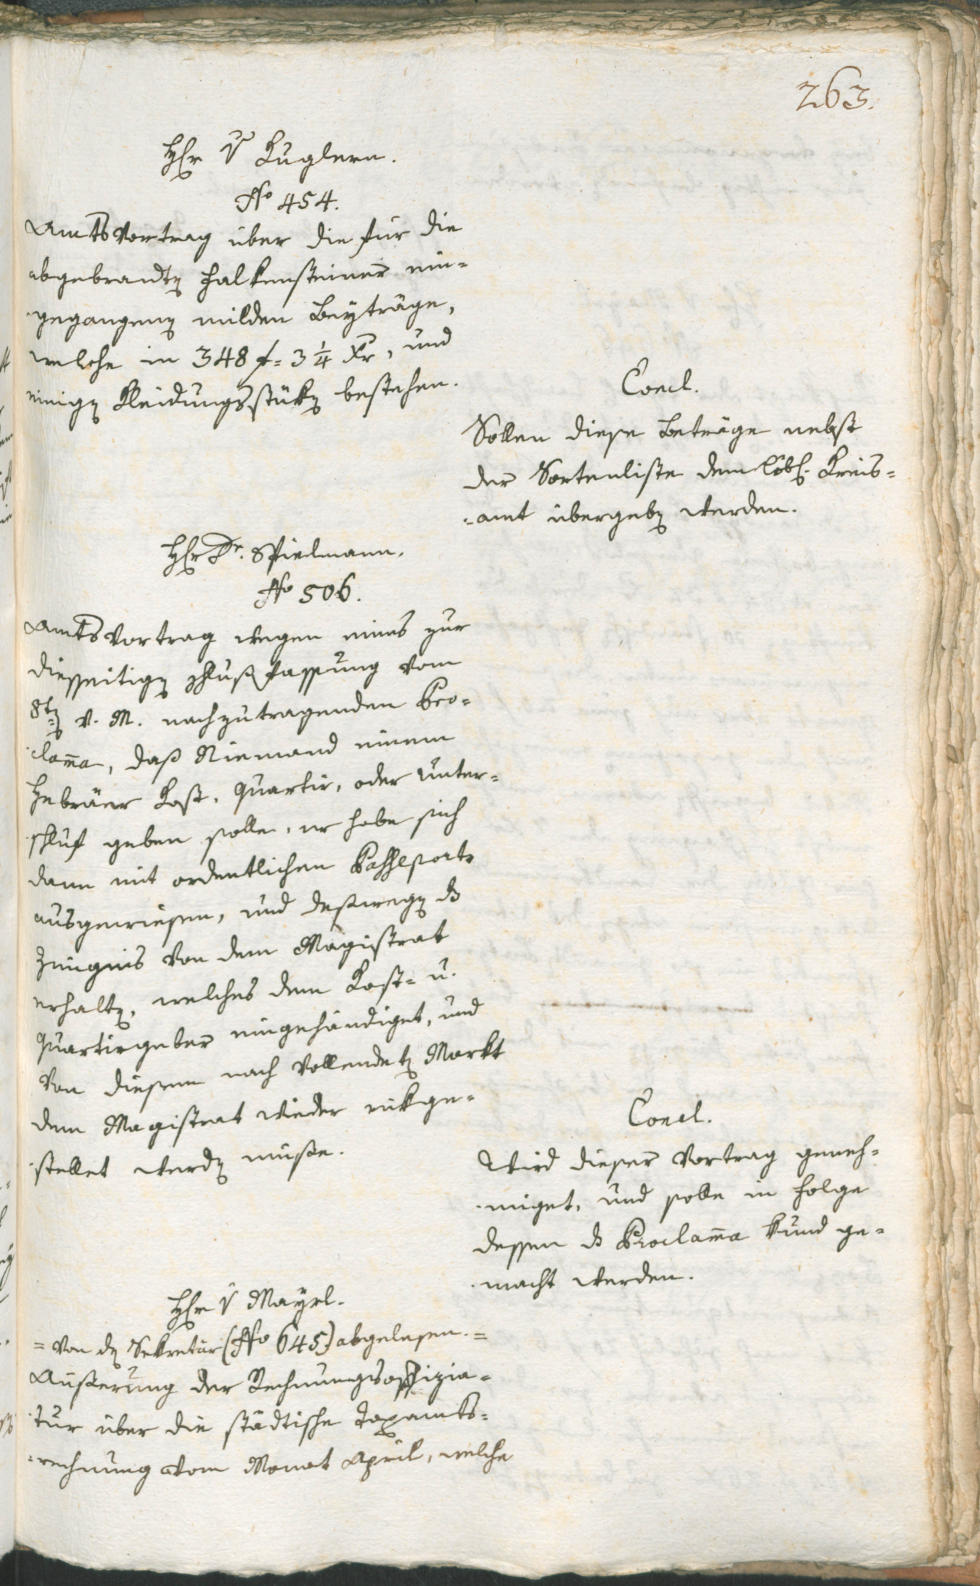 263.
Hr. v Kuglern.
No 454.
Amts Vortrag über die für die
abgebrandten Falkensteiner ein-
gegangenen milden Beyträge,
welche in 348 f. 3 1/4 Xr, und
einigen Kleidungsstüken bestehen.
Concl.
Sollen diese Beträge nebst
der Sortenliste dem Löbl. Kreis-
-amt übergeben werden.
Hr. Dr. Spielmann.
No 506.
Amts Vortrag wegen eines zur
diesseitigen Schlußfassung vom
8ten v. M. nachzutragenden Pro-
clama, daß Niemand einem
Hebräer Kost, Quartir, oder Unter-
schluf geben solle, er habe sich
dann mit ordentlichen Passeports
ausgewiesen, und deßwegen das
Zeugnis von dem Magistrat
erhalten, welches dem Kost- u.
Quartirgeber eingehändiget, und
von diesem nach vollendeten Markt
dem Magistrat wieder rükge-
stellet werden müße.
Concl.
Wird dieser Vortrag geneh-
-miget, und solle in Folge
dessen das Proclama kund ge-
macht werden.
Hr. v Mayrl.
= Von dem Sekretär (No 645) abgelesen. =
Äußerung der Rechnungsoffizia-
tur über die städtische Taxamts-
-rechnung vom Monat April, welche